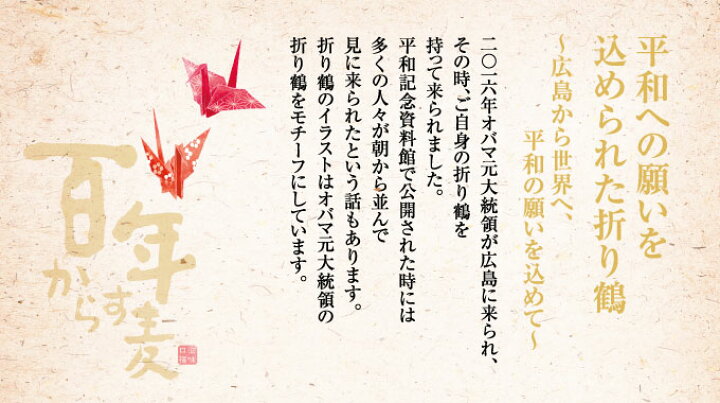 平和への願いを
込められた折り鶴
～広島から世界へ、
平和の願いを込めて～
二〇一六年オバマ元大統領が広島に来られ、
その時、ご自身の折り鶴を
持って来られました。
平和記念資料館で公開された時には
多くの人々が朝から並んで
見に来られたという話もあります。
折り鶴のイラストはオバマ元大統領の
折り鶴をモチーフにしています。
百年
からす麦